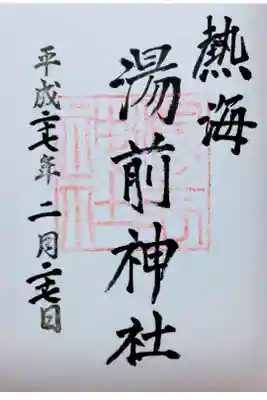 熱海
湯前神社
平成二十七年二月二十七日